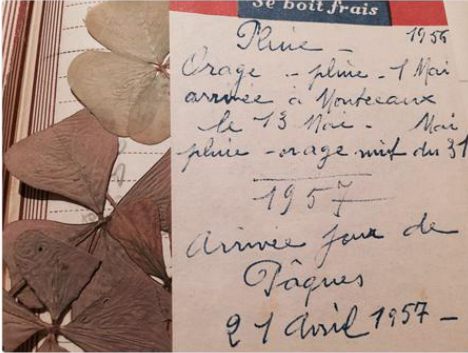 Se boit frais
Pluie - 1956
Orage - pluie - 1 Mai
arrivée à Montceaux
le 13 Mai - Mai
pluie - orage nuit du 31
1957
Arrivée jour de
Pâques
21 Avril 1957 -